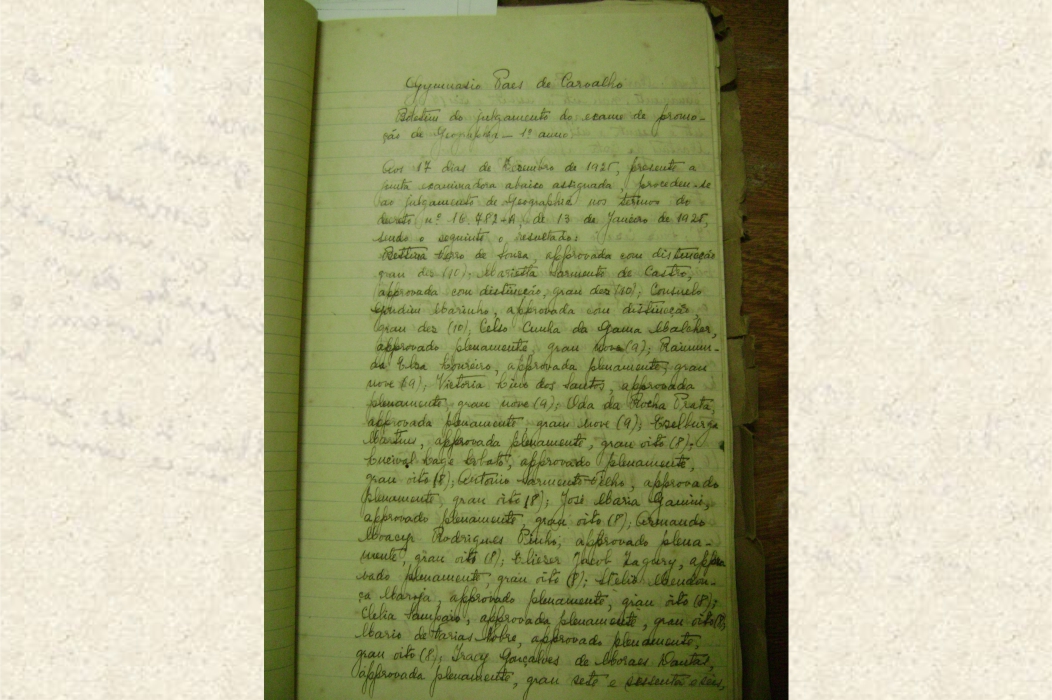 Gymnasio Paes de Carvalho
Boletim do julgamento do exame de promo-
ção de Geographia — 1º anno
Aos 17 dias de Dezembro de 1925, presente a
junta examinadora abaixo assignada, procedeu-se
ao julgamento de Geographia nos termos do
decreto nº 16.782-A, de 13 de Janeiro de 1925,
sendo o seguinte o resultado:
Bettina Ferro de Souza, approvada com distincção
grau dez (10); Marietta Sarmento de Castro,
approvada com distincção, grau dez (10); Consuelo
Gondim Marinho, approvada com distincção,
grau dez (10); Celso Cunha da Gama Malcher,
approvado plenamente, grau nove (9); Raimun-
da Elza Loureiro, approvada plenamente, grau
nove (9); Victoria Lins dos Santos, approvada
plenamente, grau nove (9); Oda da Rocha Prata,
approvada plenamente, grau nove (9);
Martins, approvada plenamente, grau oito (8);
Lucival Lage Lobato, approvado plenamente,
grau oito (8); Antonio Sarmento Filho, approvado
plenamente, grau oito (8); José Maria
approvado plenamente, grau oito (8); Armando
Moacyr Rodrigues Pinho, approvado plena-
mente, grau oito (8); Eliezer Jacob Zagury, appro
vado plenamente, grau oito (8); Stelio Mendon-
ça Maroja, approvado plenamente, grau oito (8);
Clelia Sampaio, approvada plenamente, grau oito (8);
Mario de Farias Nobre, approvado plenamente,
grau oito (8); Iracy Gonçalves de Moraes Dantas,
approvada plenamente, grau sete e sessenta e seis,